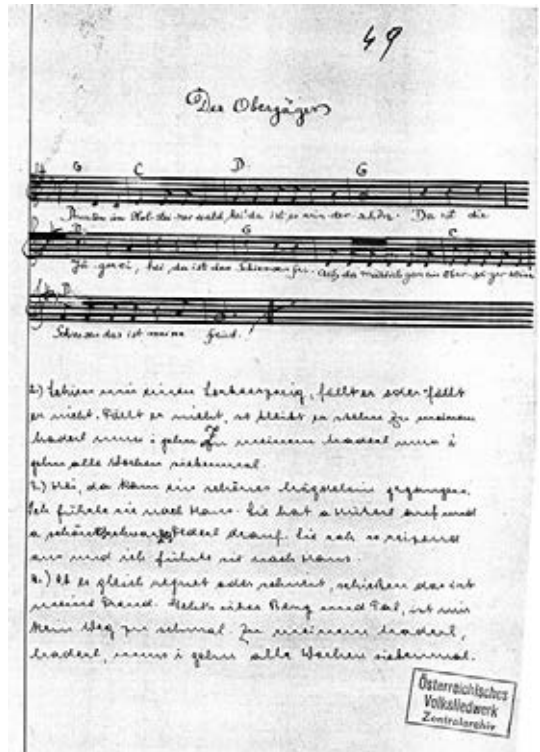 49
Der Oberjäger
G C D G
Drunten im Hol-stei-ner wald, hei da ist es wun-der schön. Da ist die
D G C
Jä-gerei, hei, da ist das Schiessen frei. Ach, da muss ich gen ein Ober-jä-ger
D
Schiessen das ist meine Freud.
2.) Schiess mir einen, fällt er oder fällt
er nicht. Fällt er nicht, so bleibt er stehn zu meinem
maderl muss i gehn Zu meinem maderl muss i
gehn alle Wochen siebenmal
3.) Hei, da kam ein schönes gegangen,
Ich führte sie nach Haus. Sie hat a auf und
a schöns schwarzes Federl drauf. Sie sah so reizend
aus und ich führte sie nach Haus.
4.) Ob es gleich regnet oder schneit, schiessen das ist
meine Freud. über Berg und Tal, ist mir
kein Weg zu schmal. Zu meinem maderl,
maderl, muss i gehn alle Wochen siebenmal.
Österreichisches
Volksliedwerk
Zentralarchiv